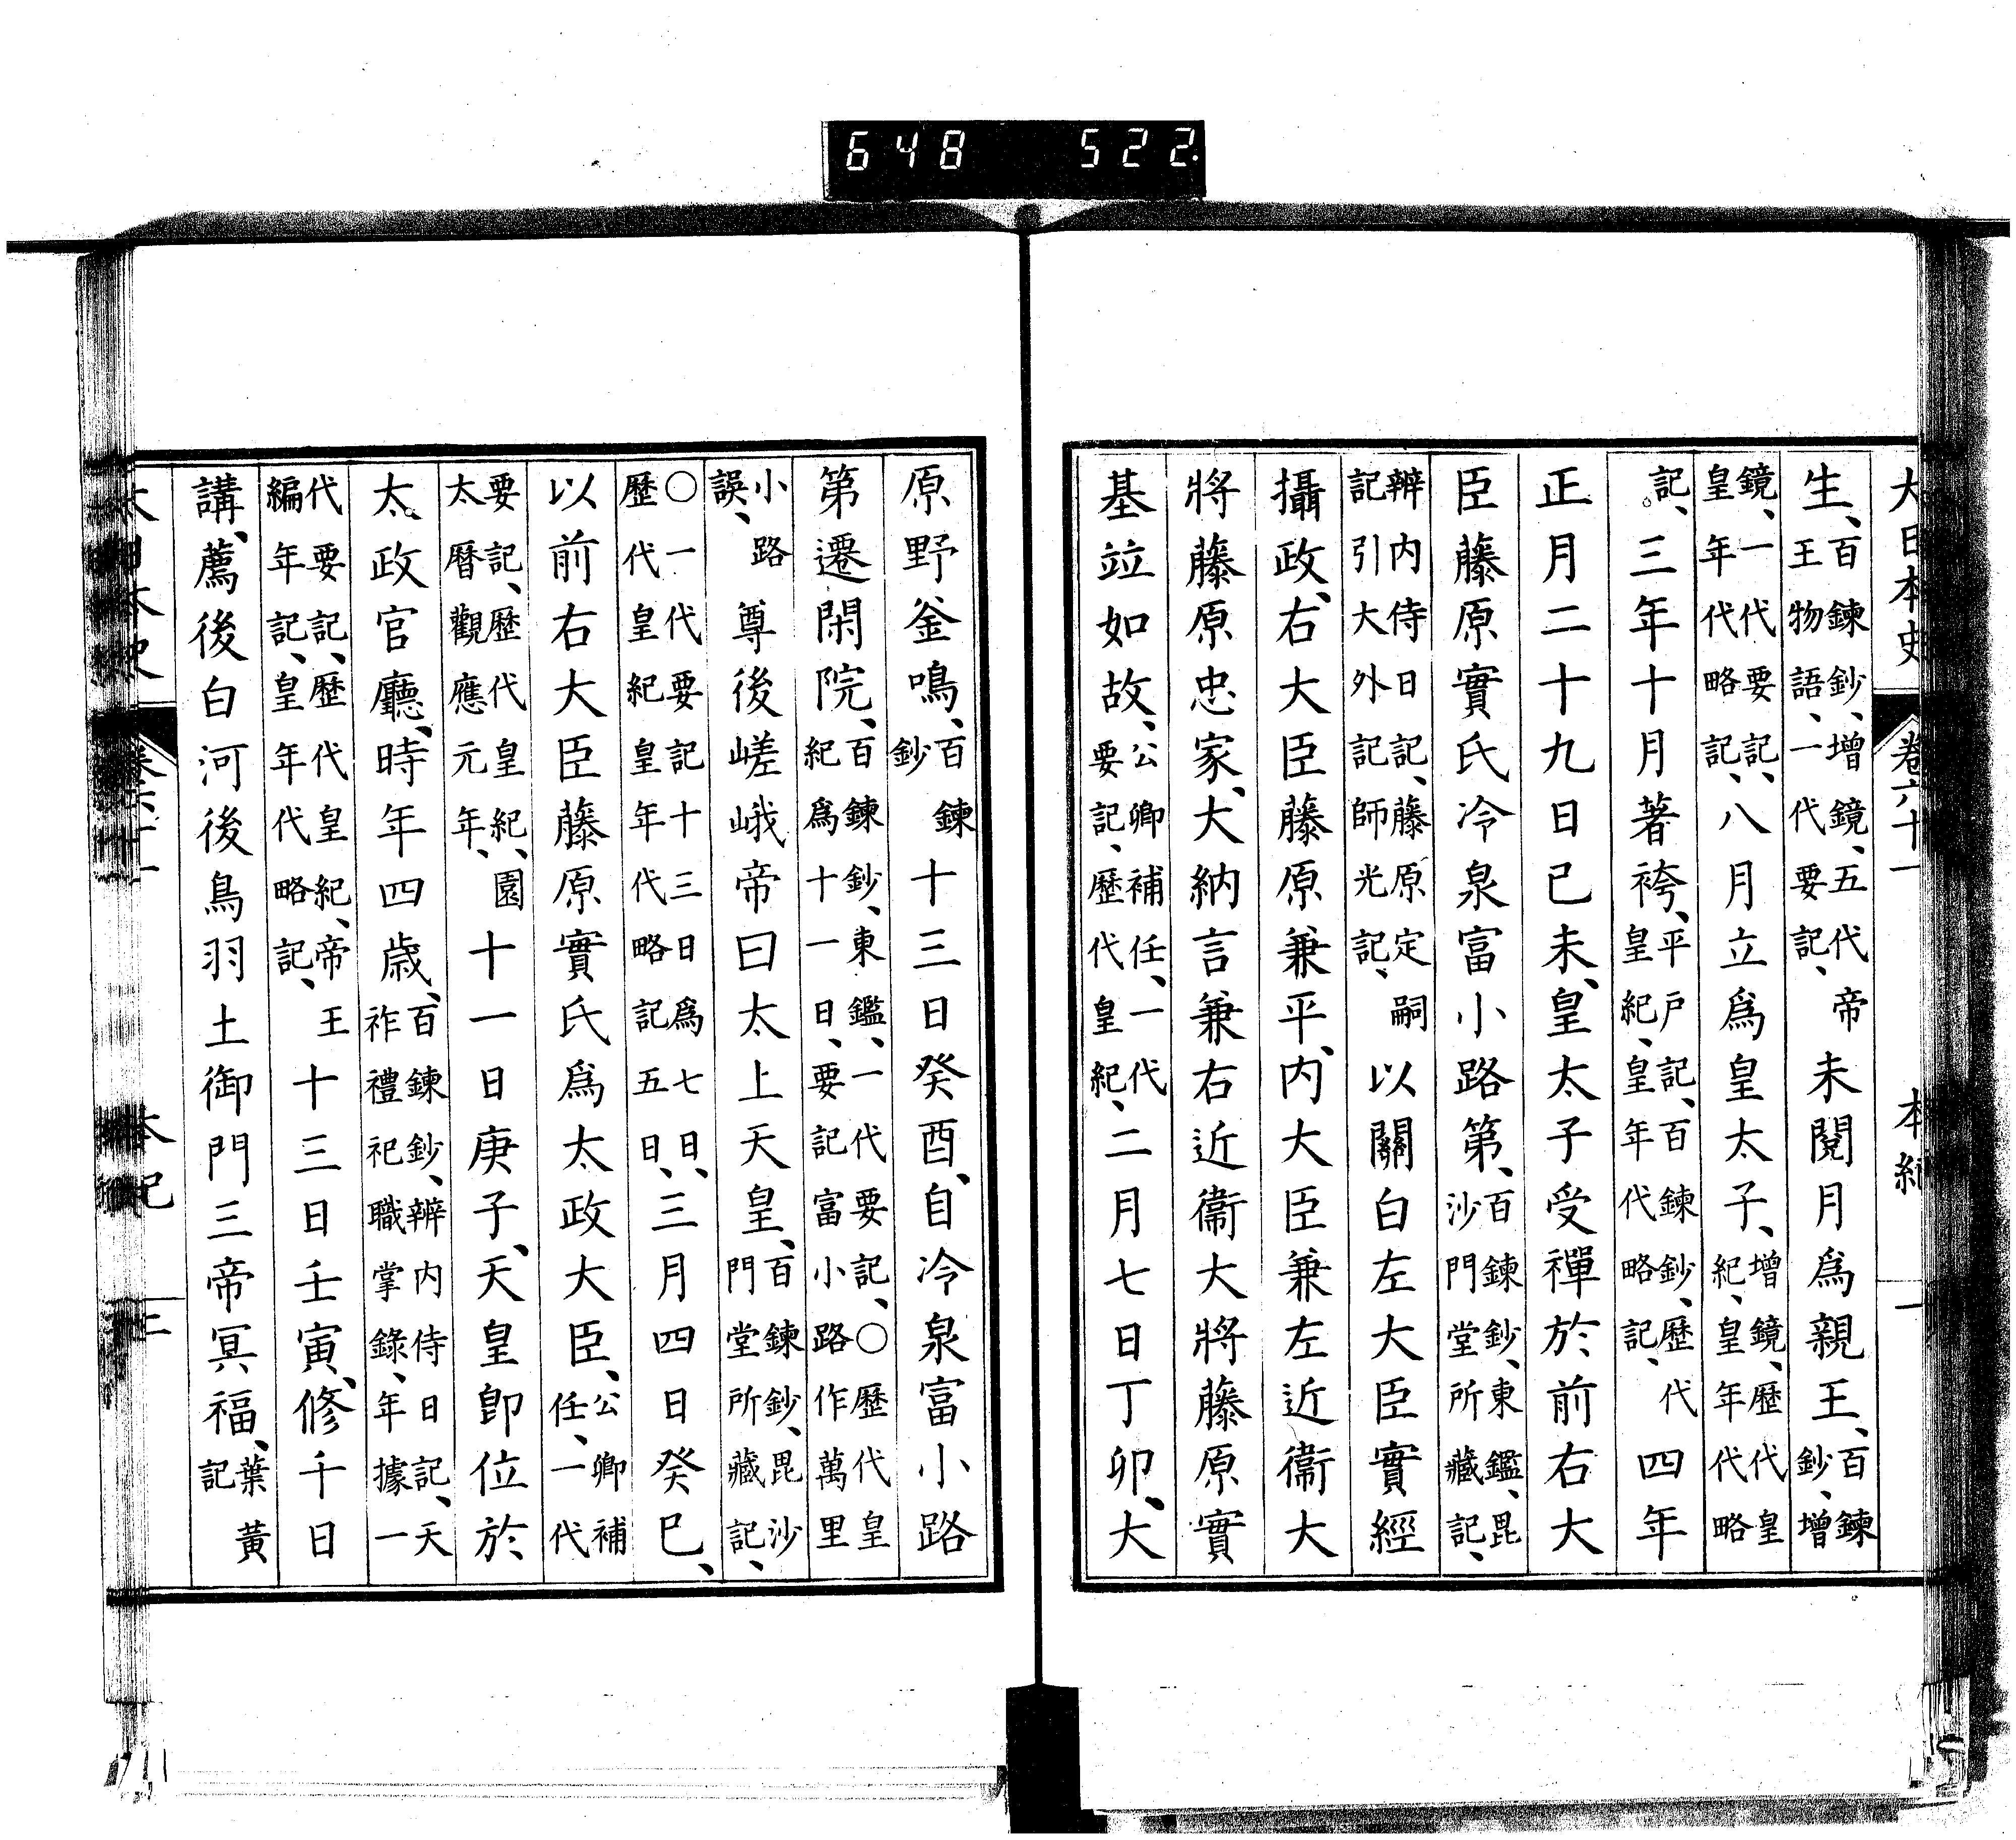 648 522
大日本史 卷六十一 本紀 一
生、百鍊鈔、增鏡、五代帝王物語、一代要記、未閱月爲親王、百鍊鈔、增
鏡、一代要記、皇年代略記、八月立爲皇太子、增鏡、歷代皇紀、皇年代略
記、三年十月著袴、平戶記、百鍊鈔、歷代皇紀、皇年代略記、四年
正月二十九日己未、皇太子受禪於前右大
臣藤原實氏冷泉富小路第、百鍊鈔、東鑑、毘沙門堂所藏記、
辨內侍日記、藤原定嗣記引大外記師光記、以關白左大臣實經
攝政、右大臣藤原兼平、內大臣兼左近衞大
將藤原忠家、大納言兼右近衞大將藤原實
基竝如故、公卿補任、一代要記、歷代皇紀、二月七日丁卯、大
原野釜鳴、百鍊鈔十三日癸酉、自冷泉富小路
第遷閑院、百鍊鈔、東鑑、一代要記、○歷代皇紀爲十一日、要記富小路作萬里
小路誤、尊後嵯峨帝曰太上天皇、百鍊鈔、毘沙門堂所藏記、
○一代要記十三日爲七日、歷代皇紀皇年代略記五日、三月四日癸巳、
以前右大臣藤原實氏爲太政大臣、公卿補任、一代
要記、歷代皇紀、園太曆觀應元年、十一日庚子、天皇卽位於
太政官廳、時年四歲、百鍊鈔、辨內侍日記、天祚禮祀職掌錄、年據一
代要記、歷代皇紀、帝王編年記、皇年代略記、十三日壬寅、修千日
講、薦後白河後鳥羽土御門三帝冥福、葉黃記
大日本史 卷六十一 本紀